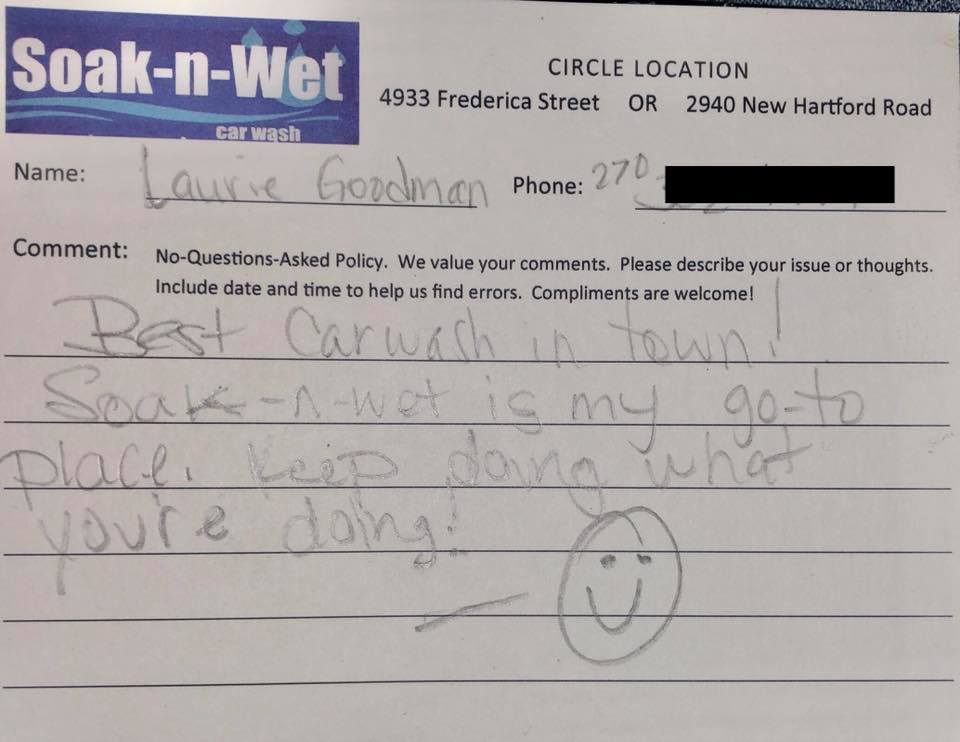 Soak-n-Wet
car wash
CIRCLE LOCATION
4933 Frederica Street OR 2940 New Hartford Road
Name: Laurie Goodman Phone: 270
Comment: No-Questions-Asked Policy. We value your comments. Please describe your issue or thoughts.
Include date and time to help us find errors. Compliments are welcome!
Best Carwash in town!
Soak-n-wet is my go-to
place. Keep doing what
you're doing!